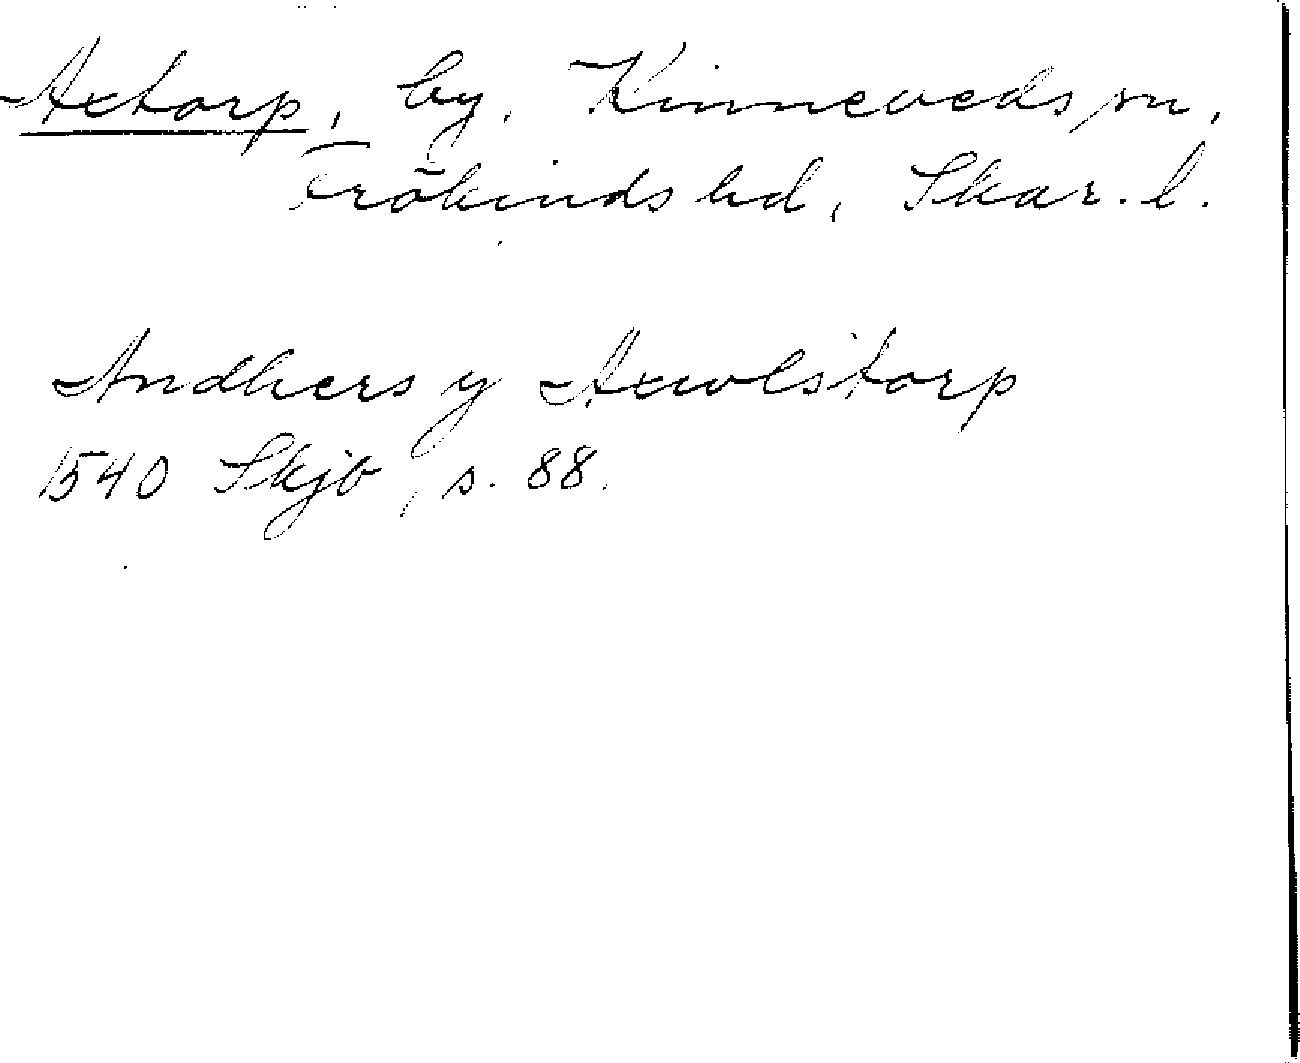 Axtorp, by, Kinneveds sn,
Frökinds hd, Skar. l.
Andhers y Axwlstorp
1540 Skjb, s. 88.